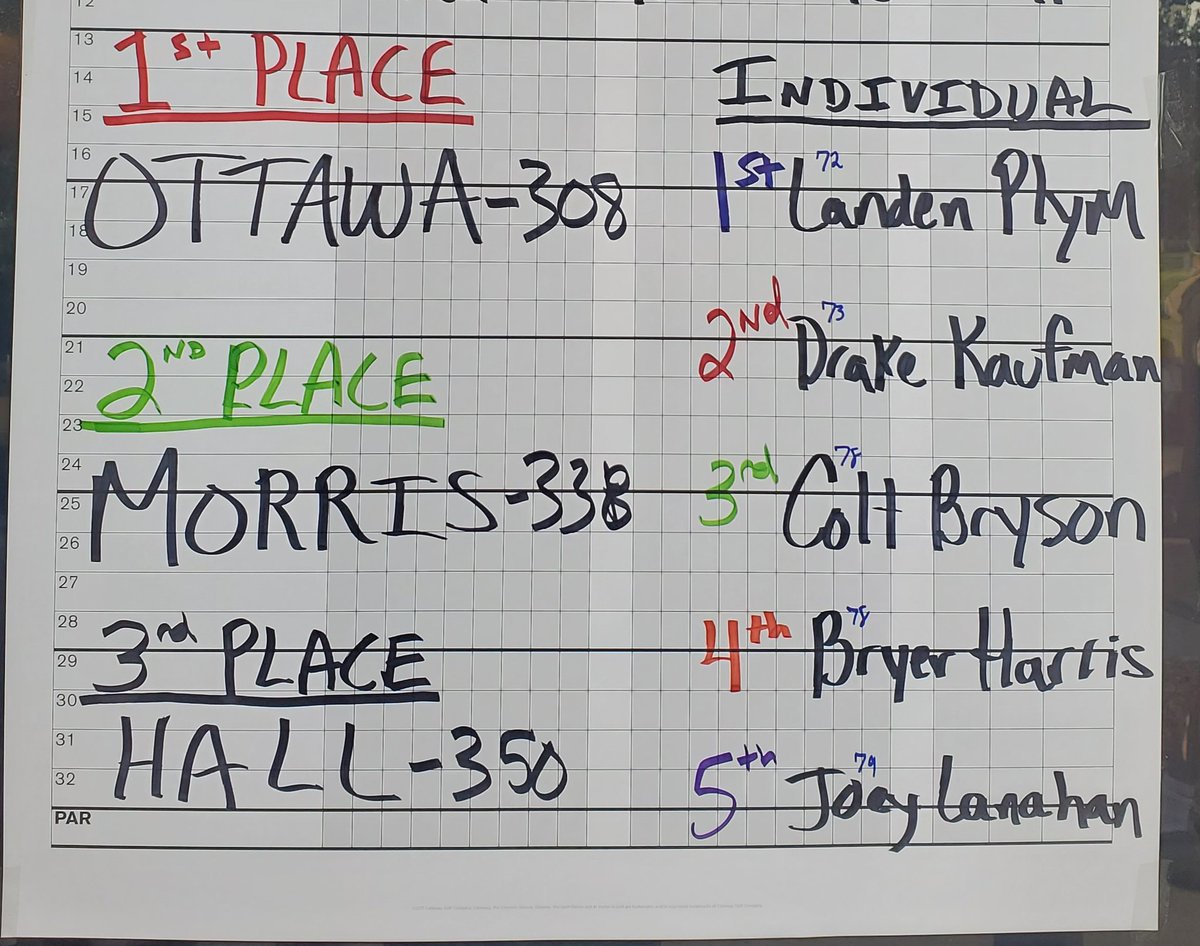 12
13
14
15
16
17
18
19
20
21
22
23
24
25
26
27
28
29
30
31
32
PAR
1st PLACE
OTTAWA-308
2ND PLACE
MORRIS-338
3rd PLACE
HALL-350
INDIVIDUAL
1st 72 Landen Plym
2Nd 73 Drake Kaufman
3rd 78 Colt Bryson
4th 78 Bryer Harris
5th 79 Joey Lanahan